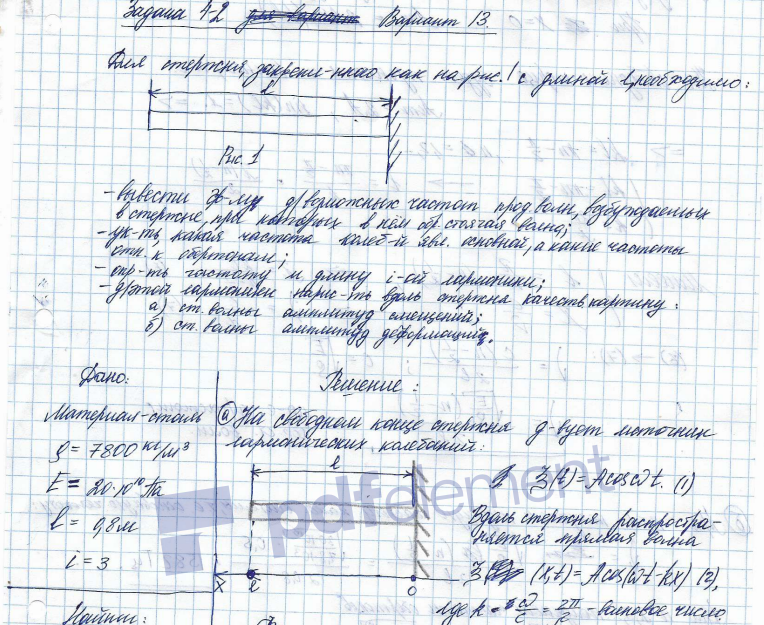 Задача 4-2 для вариант Вариант 13.
Для стержня, закрепленного как на рис. 1 с длиной l, необходимо:
l
Рис. 1
- вывести ф-лу д/возможных частот прод. волн, возбуждаемых
в стержне, при которых в нём обр. стоячая волна;
- ук-ть, какая частота колеб-й явл. основной, а какие частоты
отн. к обертонам;
- опр-ть частоту и длину i-ой гармоники;
- д/этой гармоники нарис-ть вдоль стержня качеств. картину:
а) ст. волны амплитуд смещений;
б) ст. волны амплитуд деформаций.
Дано:
Решение:
Материал - сталь
ρ = 7800 кг/м³
E = 20·10¹⁰ Па
l = 0,8 м
i = 3
Найти:
а) На свободном конце стержня д-вует источник
гармонических колебаний:
l
ξ(t) = A cos ωt. (1)
Вдоль стержня распростра-
няется прямая волна
ξ (x,t) = A cos(ωt - kx) (2),
где k = ω/c = 2π/λ - волновое число.
x l 0
pdfelement